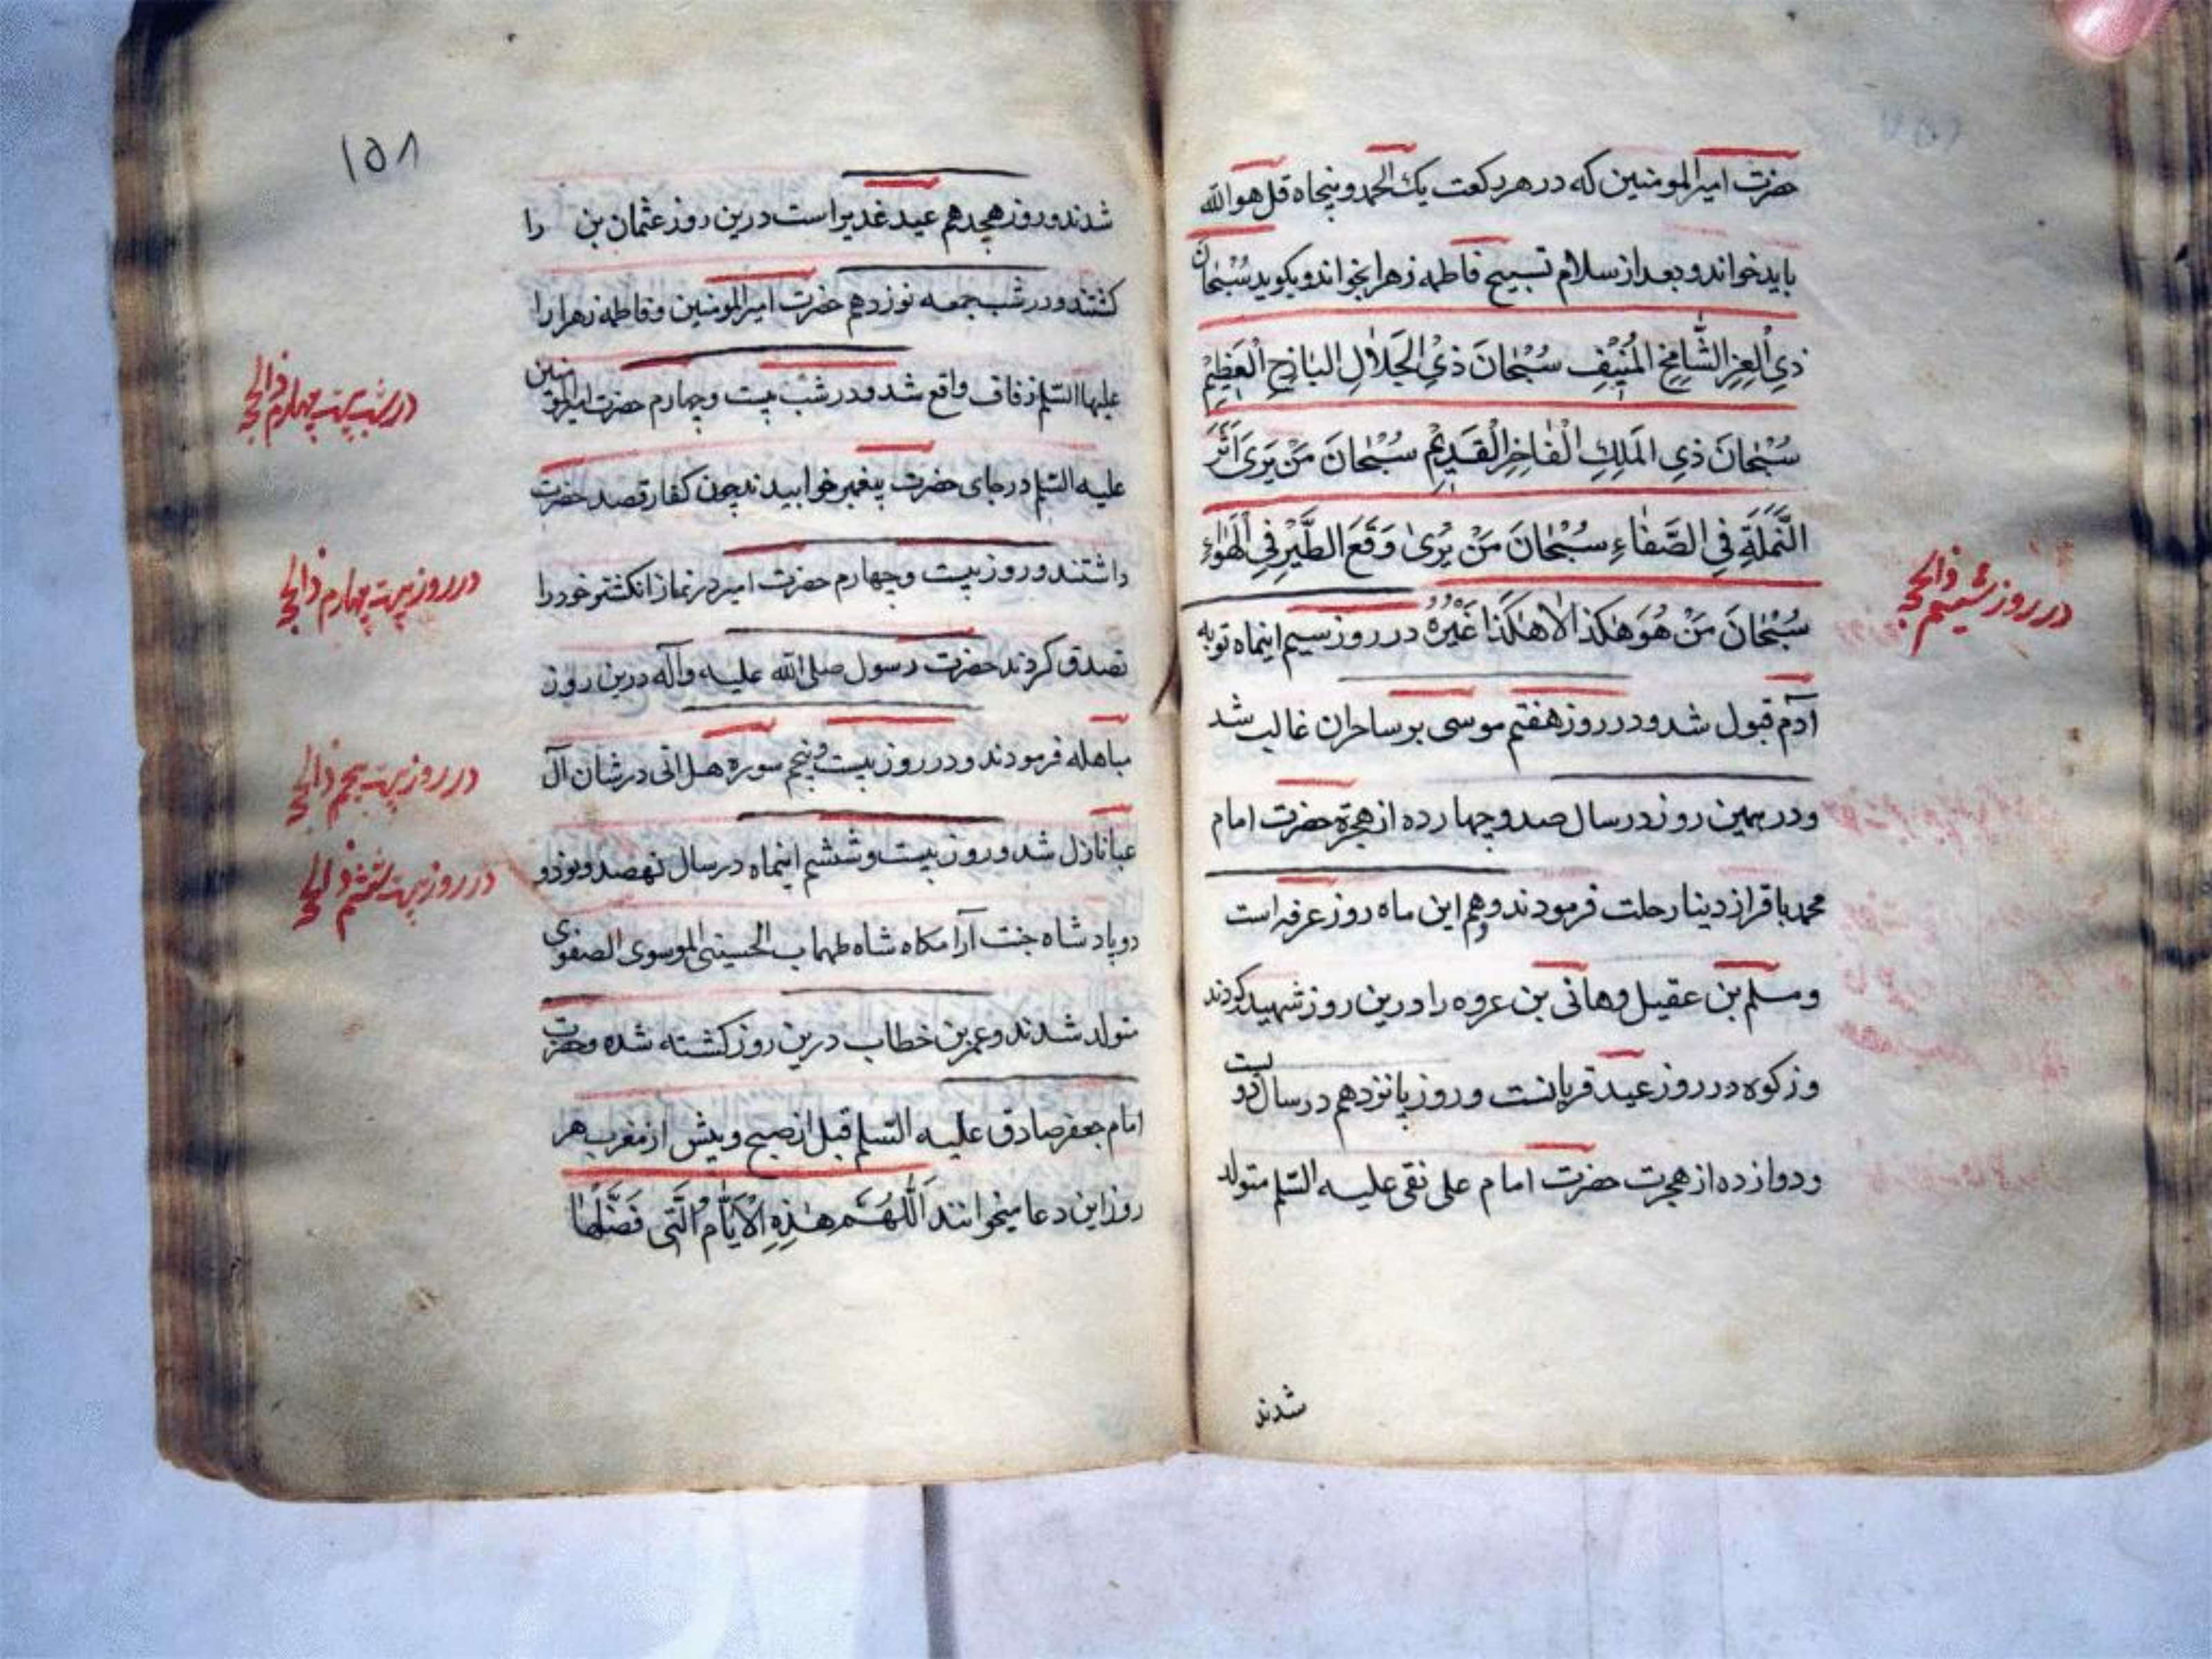 حضرت امیرالمومنین که در هر رکعت یک الحمد و پنجاه قل هوالله
باید خواند و بعد از سلام تسبیح فاطمه زهرا بخواند و بکوید سُبْحٰانَ
ذِي الْعِزِّ الشَّامِخِ الْمُنِيْفِ سُبْحٰانَ ذِي الْجَلٰالِ الْبٰاذِخِ الْعَظِيْمِ
سُبْحٰانَ ذِي الْمَلِكِ الْفٰاخِرِ الْقَدِيْمِ سُبْحٰانَ مَنْ يَرىٰ اَثَرَ
النَّمْلَةِ فِي الصَّفٰاءِ سُبْحٰانَ مَنْ يَرىٰ وَقْعَ الطَّيْرِ فِي الْهَوٰاءِ
سُبْحٰانَ مَنْ هُوَ هٰكَذٰا لاٰ هٰكَذٰا غَيْرُهُ در روز سیم اینماه توبه
در روز ششم ذالحجه
آدم قبول شد و در روز هفتم موسی بر ساحران غالب شد
و در همین روز در سال صد و چهارده از هجرة حضرت امام
محمد باقر از دینا رحلت فرمودند و هم این ماه روز عرفه است
و مسلم بن عقیل و هانی بن عروه را در ین روز شهید کردند
و زکوه در روز عید قربانست و روز پانزدهم در سال دویست
و دوازده از هجرت حضرت امام علی نقی علیه السّلم متولد
شدند
١٥٨
شدند و روز هجدهم عید غدیر است در ین روز عثمان بن را
کشتند و در شب جمعه نوزدهم حضرت امیرالمومنین و فاطمه زهرا را
علیهما السّلم زفاف واقع شد و در شب بیست و چهارم حضرت امیرالمومنین
در شب بیست چهارم ذالحجه
علیه السّلم در جای حضرت پیغمبر خوابیدند چون کفار قصد حضرت
داشتند و روز بیست و چهارم حضرت امیر در نماز انکشتر خود را
در روز بیست چهارم ذالحجه
تصدق کردند حضرت رسول صلی الله علیه وآله در ین روز
مباهله فرمودند و در روز بیست و پنجم سوره هل اتی در شان آل
در روز بیست پنجم ذالحجه
عبا نازل شد و روز بیست و ششم اینماه در سال نهصد و نود و
در روز بیست ششم ذالحجه
دو پادشاه جنت آرامکاه شاه طهماسب الحسینی الموسوی الصفوی
متولد شدند و عمر بن خطاب در ین روز کشته شده و حضرت
امام جعفر صادق علیه السّلم قبل از صبح و پیش از مغرب هر
روز این دعا میخوانند اَللّٰهُمَّ هٰذِهِ الْاَيّٰامُ الَّتِي فَضَّلْتَهٰا